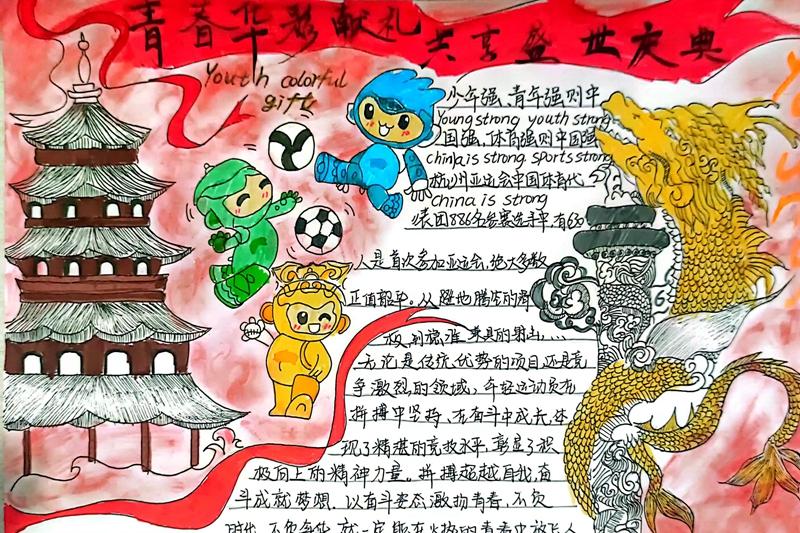 青春华彩献礼 共享盛世庆典
Youth colorful
gift
少年强、青年强则中
Young strong youth strong
国强,体育强则中国强
china is strong sports strong
杭州亚运会中国体育代
china is strong
表团886名参赛选手中,有630
人是首次参加亚运会,绝大多数
正值韶华。从
无论是传统优势的项目还是竞
争激烈的领域,年轻运动员在
拼搏中坚持,在奋斗中成长,体
现了精湛的竞技水平,彰显了积
极向上的精神力量。拼搏超越自我,奋
斗成就梦想。以奋斗姿态激扬青春,不负
时代,不负年华,就一定能在火热的青春中放飞人